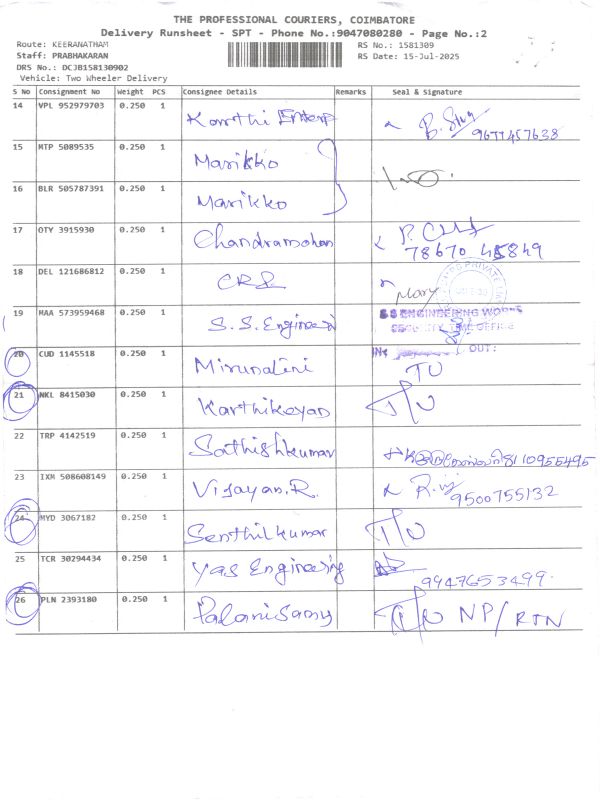 THE PROFESSIONAL COURIERS, COIMBATORE
Delivery Runsheet - SPT - Phone No.:9047080280 - Page No.:2
Route: KEERANATHAM
RS No.: 1581309
Staff: PRABHAKARAN
RS Date: 15-Jul-2025
DRS No.: DCJB158130902
Vehicle: Two Wheeler Delivery
S No Consignment No Weight PCS Consignee Details Remarks Seal & Signature
14 VPL 952979703 0.250 1 Karrthi Enterp 9677457638
15 MTP 5089535 0.250 1 Marikko
16 BLR 505787391 0.250 1 Marikko
17 OTY 3915930 0.250 1 Chandramohan 78670 45849
18 DEL 121686812 0.250 1 Mary
19 MAA 573959468 0.250 1 S.S. Engineer S S ENGINEERING WORKS
SECURITY TIME OFFICE
IN: OUT:
20 CUD 1145518 0.250 1 Mirunalini TU
21 NKL 8415030 0.250 1 Karthikeyan T/U
22 TRP 4142519 0.250 1 Sathishkumar 8110955495
23 IXM 508608149 0.250 1 Vijayan.R. 9500755132
24 MYD 3067182 0.250 1 Senthilkumar T/U
25 TCR 30294434 0.250 1 Yas Engineering 9947653499
26 PLN 2393180 0.250 1 Palanisamy T/U NP/RTN